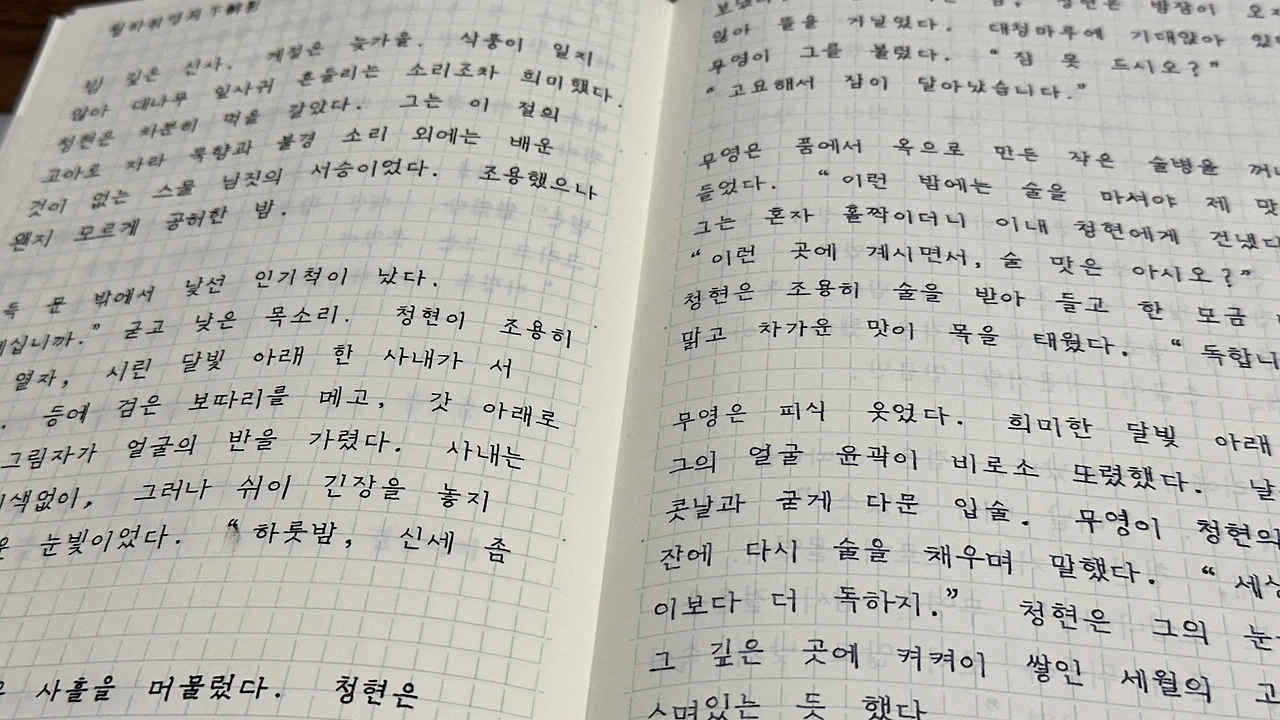 밤 깊은 신사. 계절은 늦가을. 삭풍이 일지
않아 대나무 잎사귀 흔들리는 소리조차 희미했다.
청현은 차분히 먹을 갈았다. 그는 이 절의
고아로 자라 묵향과 불경 소리 외에는 배운
것이 없는 스물 남짓의 서승이었다. 조용했으나
왠지 모르게 공허한 밤.
문 밖에서 낯선 인기척이 났다.
굳고 낮은 목소리. 청현이 조용히
열자, 시린 달빛 아래 한 사내가 서
등에 검은 보따리를 메고, 갓 아래로
그림자가 얼굴의 반을 가렸다. 사내는
그러나 쉬이 긴장을 놓지
눈빛이었다. “하룻밤, 신세 좀
사흘을 머물렀다. 청현은
않아 뜰을 거닐었다. 대청마루에 기대앉아
무영이 그를 불렀다. “잠 못 드시오?”
“고요해서 잠이 달아났습니다.”
무영은 품에서 옥으로 만든 작은 술병을
들었다. “이런 밤에는 술을 마셔야 제 맛
그는 혼자 홀짝이더니 이내 청현에게
“이런 곳에 계시면서, 술 맛은 아시오?”
청현은 조용히 술을 받아 들고 한 모금
맑고 차가운 맛이 목을 태웠다. “독합니
무영은 피식 웃었다. 희미한 달빛 아래
그의 얼굴 윤곽이 비로소 또렸했다. 날
콧날과 굳게 다문 입술. 무영이 청현의
잔에 다시 술을 채우며 말했다. “세상
이보다 더 독하지.” 청현은 그의 눈
그 깊은 곳에 켜켜이 쌓인 세월의 고
듯 했다